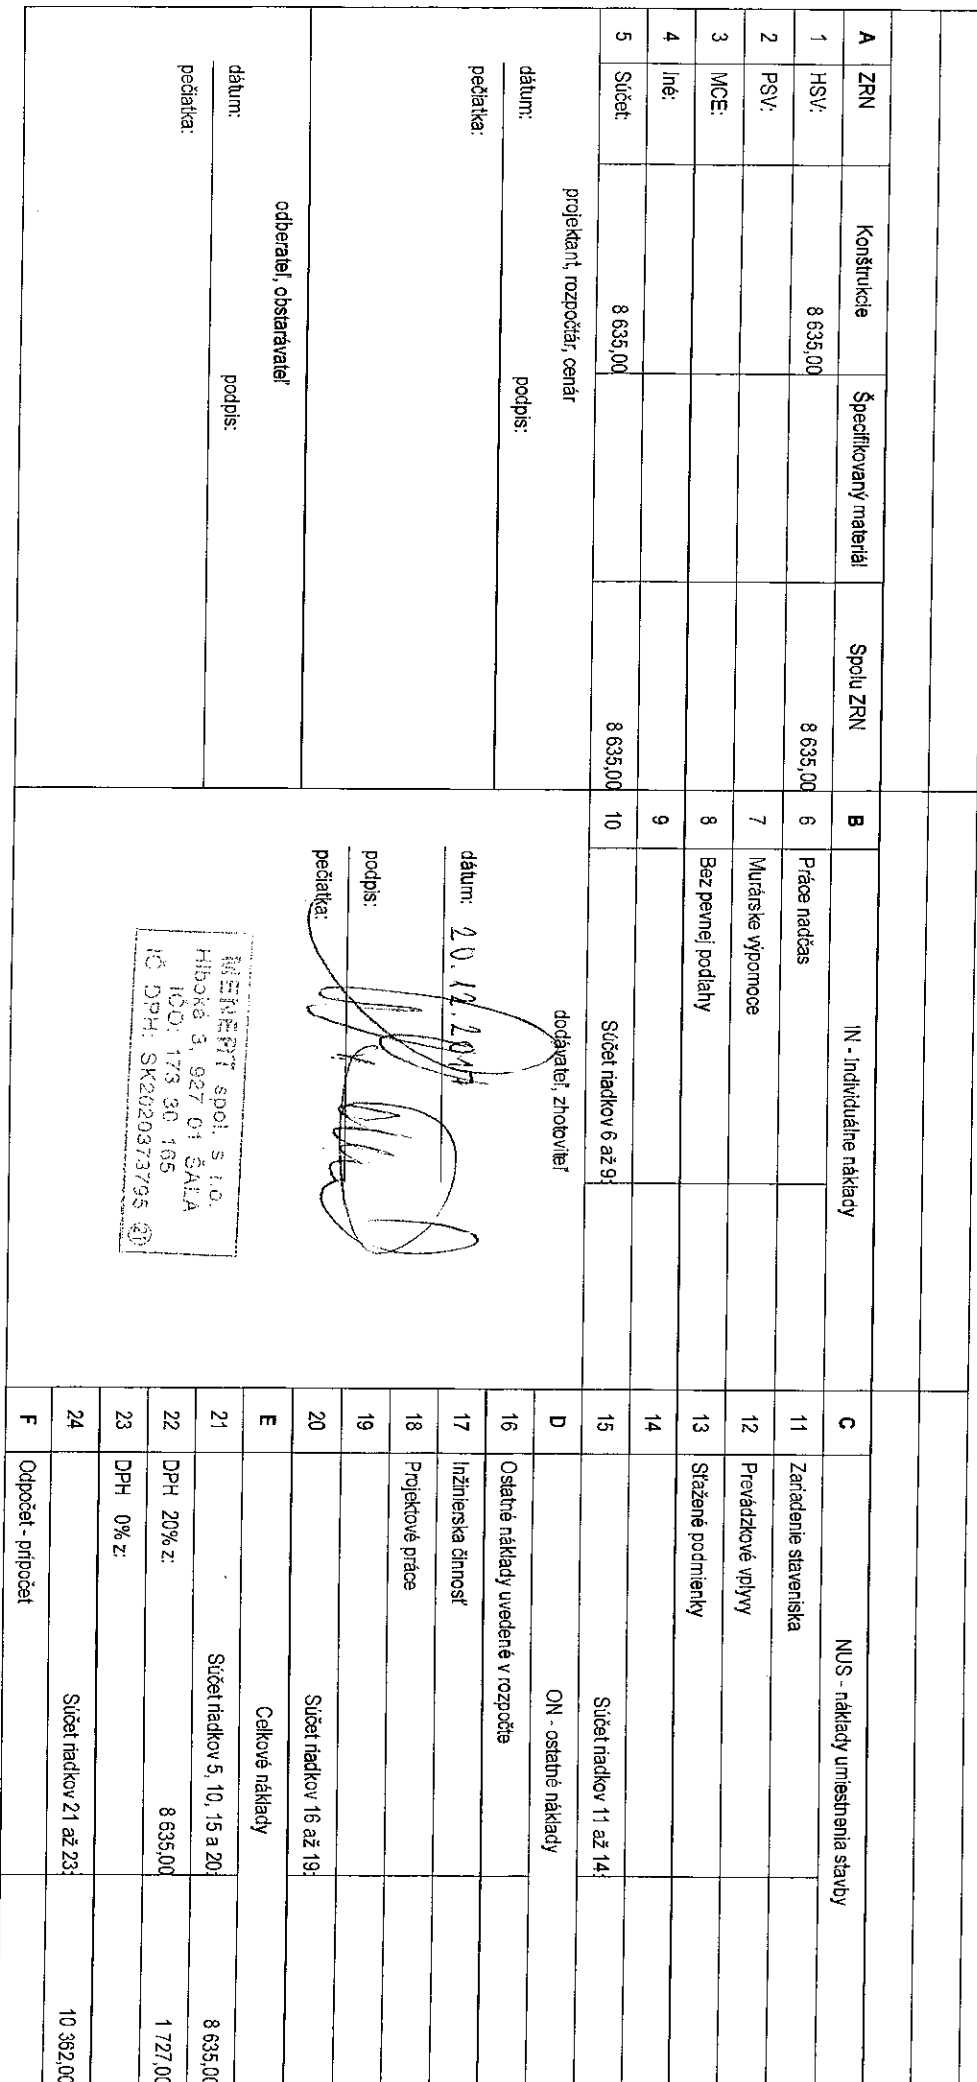 A ZRN Konštrukcie Špecifikovaný materiál Spolu ZRN
1 HSV: 8 635,00 8 635,00
2 PSV:
3 MCE:
4 Iné:
5 Súčet: 8 635,00 8 635,00
projektant, rozpočtár, cenár
dátum: podpis:
pečiatka:
odberateľ, obstarávateľ
dátum: podpis:
pečiatka:
B IN - Individuálne náklady
6 Práce nadčas
7 Murárske výpomoce
8 Bez pevnej podlahy
9
10 Súčet riadkov 6 až 9:
dodávateľ, zhotoviteľ
dátum: 20.12.2017
podpis:
pečiatka:
MENERT spol. s r.o.
Hlboká 3, 927 01 ŠAĽA
IČO: 173 30 165
IČ DPH: SK2020373795
C NUS - náklady umiestnenia stavby
11 Zariadenie staveniska
12 Prevádzkové vplyvy
13 Sťažené podmienky
14
15 Súčet riadkov 11 až 14:
D ON - ostatné náklady
16 Ostatné náklady uvedené v rozpočte
17 Inžinierska činnosť
18 Projektové práce
19
20 Súčet riadkov 16 až 19:
E Celkové náklady
21 Súčet riadkov 5, 10, 15 a 20: 8 635,00
22 DPH 20% z: 8 635,00 1 727,00
23 DPH 0% z:
24 Súčet riadkov 21 až 23: 10 362,00
F Odpočet - prípočet